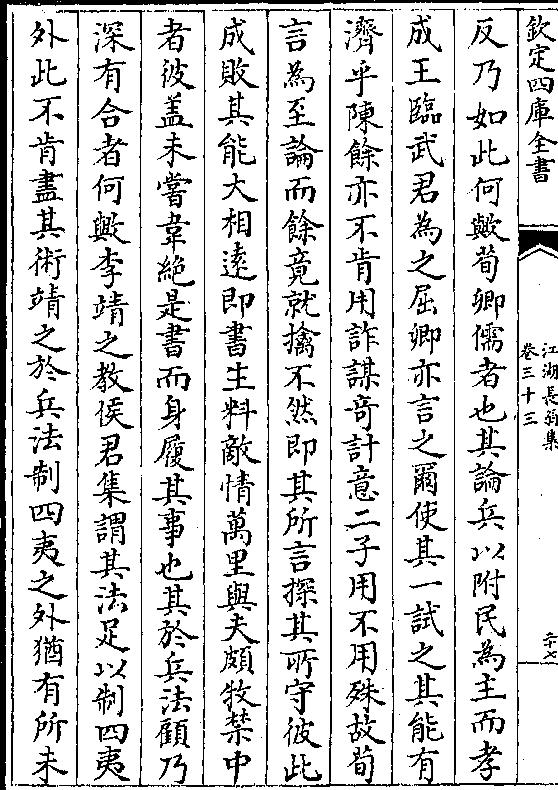 欽定四庫全書
江湖長翁集
卷三十三
反乃如此何歟荀卿儒者也其論兵以附民為主而孝
成王臨武君為之屈卿亦言之爾使其一試之其能有
濟乎陳餘亦不肯用詐謀竒計意二子用不用殊故荀
言為至論而餘竟就擒不然即其所言探其所守彼此
成敗其能大相逺即書生料敵情萬里與夫頗牧禁中
者彼盖未嘗韋絶是書而身履其事也其於兵法顧乃
深有合者何歟李靖之教侯君集謂其法足以制四夷
外此不肯盡其術靖之於兵法制四夷之外猶有所未